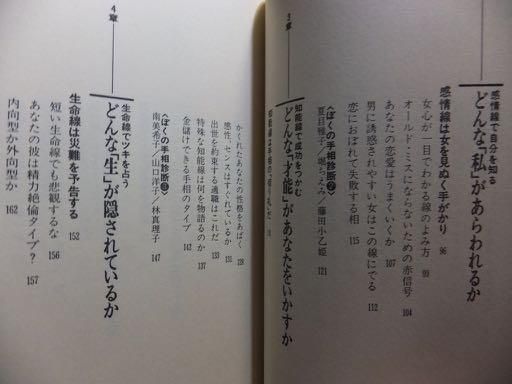 3章
感情線で自分を知る
どんな「私」があらわれるか
感情線は女を見ぬく手がかり 96
女心が一目でわかる線のよみ方 99
オールド・ミスにならないための赤信号 104
あなたの恋愛はうまくいくか 107
男に誘惑されやすい女はこの線にでる 112
恋におぼれて失敗する相 115
〈ぼくの手相診断❷〉
夏目雅子／堀ちえみ／藤田小乙姫 121
知能線で成功をつかむ
どんな「才能」があなたをいかすか
知能線は
かくれたあなたの性格をあばく 128
感性、センスはすぐれているか 131
出世を約束する適職はこれだ 133
特殊な知能線は何を物語るのか 135
金儲けできる手相のタイプ 137
〈ぼくの手相診断❸〉
南美希子／山口洋子／林真理子 147
4章
生命線でツキを占う
どんな「生」が隠されているか
生命線は災難を予告する 152
短い生命線でも悲観するな 156
あなたの彼は精力絶倫タイプ？ 157
内向型か外向型か 162